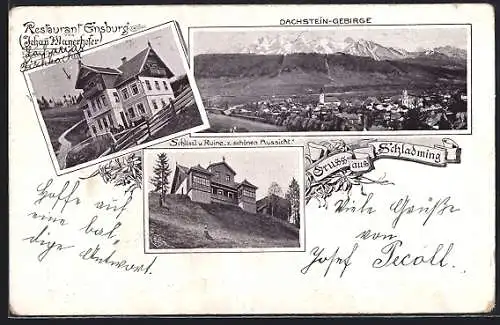 Restaurant Ensburg
Johan Mayerhofer
DACHSTEIN-GEBIRGE
"Schlössl u Ruine, z. schönen Aussicht."
Gruss aus Schladming
Hoffe auf
eine bal-
dige Antwort.
Viele Grüße
von
Josef Pecoll.